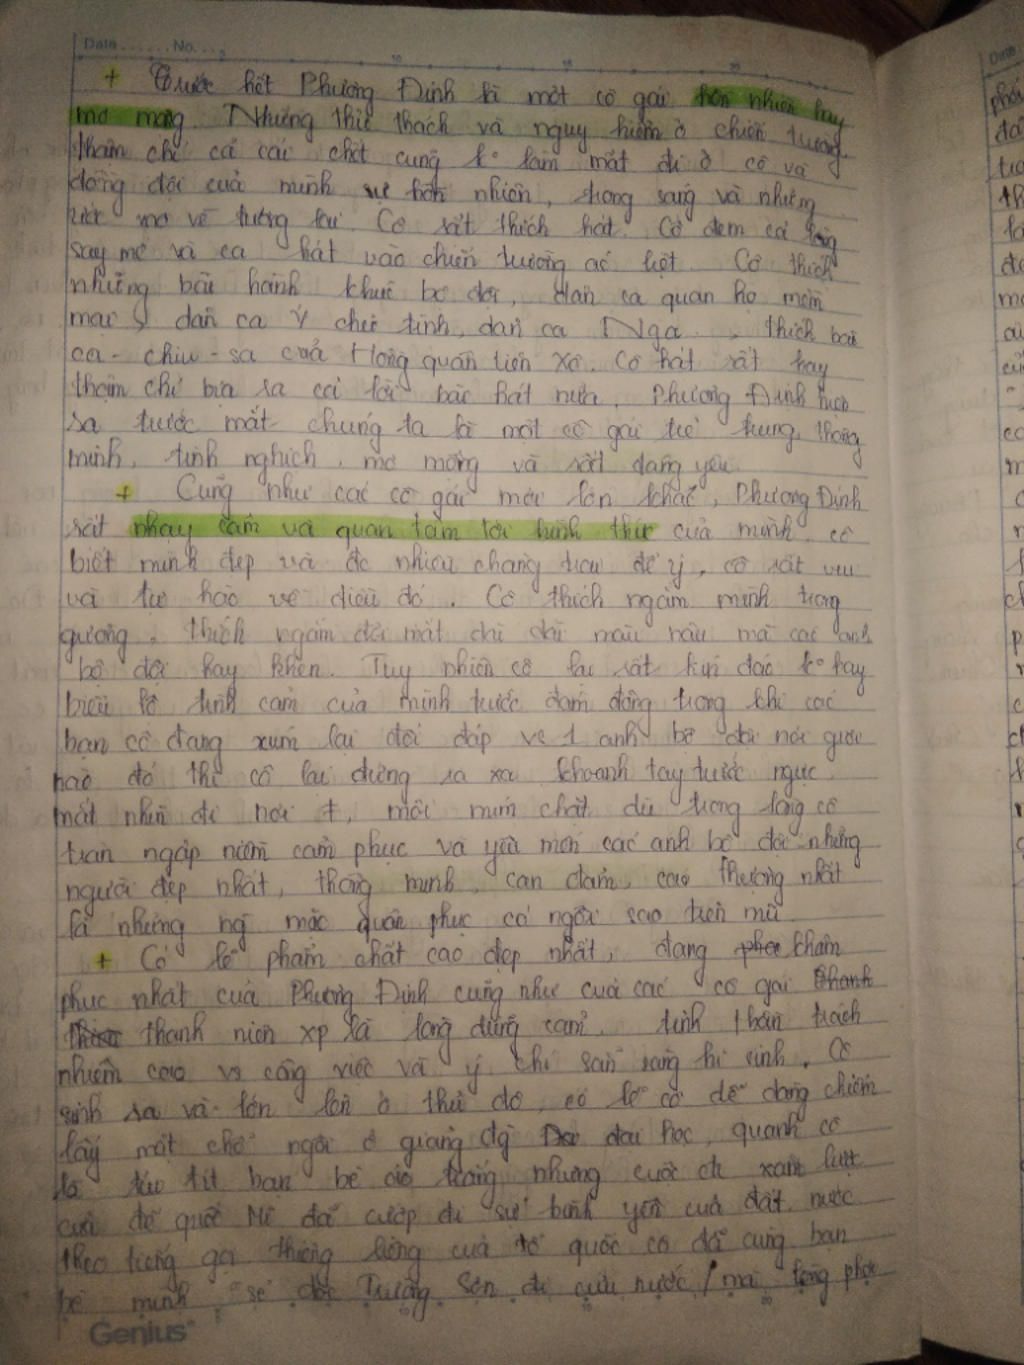 Date ...... No. ...
+ Trước hết Phương Định là một cô gái hồn nhiên hay
mơ mộng. Những thử thách và nguy hiểm ở chiến trường
thậm chí cả cái chết cũng ko làm mất đi ở cô và
đồng đội của mình sự hồn nhiên, trong sáng và những
ước mơ về tương lai. Cô rất thích hát. Cô đem cả lòng
say mê và ca hát vào chiến trường ác liệt. Cô thích
những bài hành khúc bộ đội, dân ca quan họ mềm
mại, dân ca Ý trữ tình, dân ca Nga, thích bài
ca-chiu-sa của Hồng quân Liên Xô. Cô hát rất hay
thậm chí bịa ra cả lời bài hát nữa. Phương Định hiện
ra trước mắt chúng ta là một cô gái trẻ trung, thông
minh, tinh nghịch, mơ mộng và rất đáng yêu.
+ Cũng như các cô gái mới lớn khác, Phương Định
rất nhạy cảm và quan tâm tới hình thức của mình. cô
biết mình đẹp và đc nhiều chàng trai để ý, cô rất vui
và tự hào về điều đó. Cô thích ngắm mình trong
gương, thích ngắm đôi mắt dài dài màu nâu mà các anh
bộ đội hay khen. Tuy nhiên cô lại rất kín đáo ko hay
biểu lộ tình cảm của mình trước đám đông trong khi các
bạn cô đang xúm lại đối đáp vs 1 anh bộ đội nói giỏi
nào đó thì cô lại đứng ra xa khoanh tay trước ngực
mắt nhìn đi nơi ≠, môi mím chặt dù trong lòng cô
tràn ngập niềm cảm phục và yêu mến các anh bộ đội-những
người đẹp nhất, thông minh, can đảm, cao thượng nhất
là những ng mặc quân phục có ngôi sao trên mũ.
+ Có lẽ phẩm chất cao đẹp nhất, đáng khâm
phục nhất của Phương Định cũng như của các cô gái
thanh niên xp là lòng dũng cảm, tinh thần trách
nhiệm cao vs công việc và ý chí sẵn sàng hi sinh. Cô
sinh ra và lớn lên ở thủ đô, có lẽ cô dễ dàng chiếm
lấy một chỗ ngồi ở giảng đg đại học, quanh cô
là ríu rít bạn bè áo trắng nhưng cuộc ch xâm lược
của đế quốc Mĩ đã cướp đi sự bình yên của đất nước
theo tiếng gọi thiêng liêng của tổ quốc cô đã cùng bạn
bè mình "sẻ dọc Trường Sơn đi cứu nước / mà lòng phơi
Genius